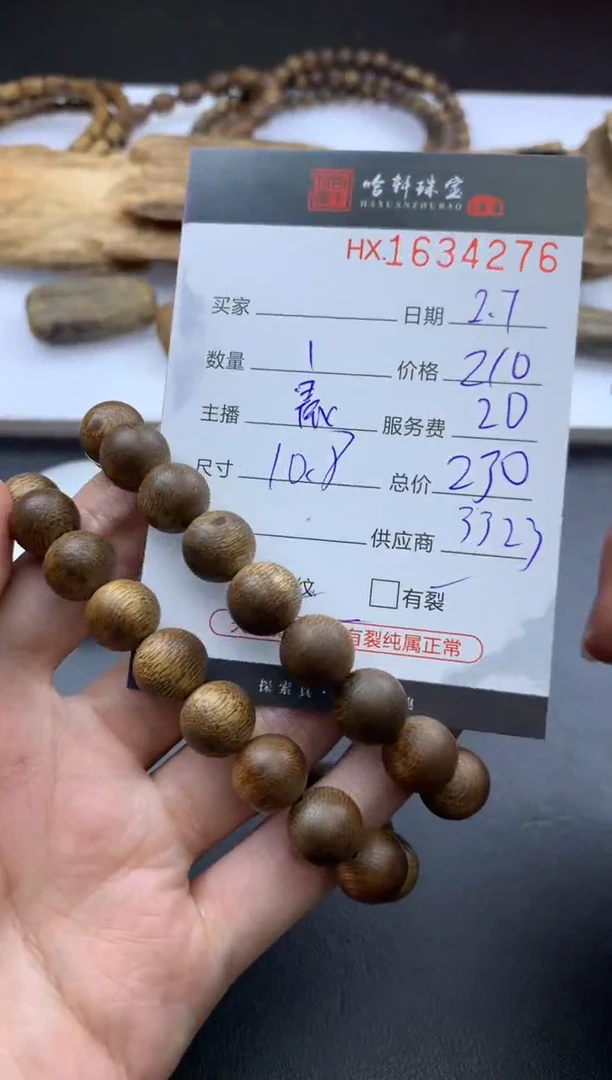 哈轩珠宝
HAXUANZHUBAO
HX.1634276
买家 日期 2.7
数量 1 价格 210
主播 服务费 20
尺寸 10.8 总价 230
供应商 3323
纹 有裂
有裂纯属正常
探索真·